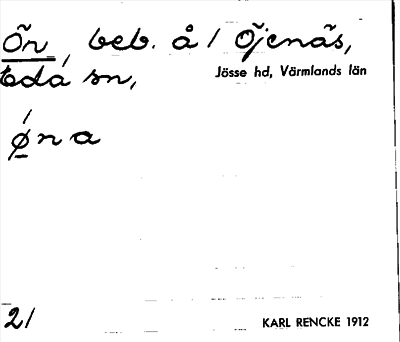 Ön, beb. å / Öjenäs,
Eda sn,
Jösse hd, Värmlands län
ǿna
21
KARL RENCKE 1912